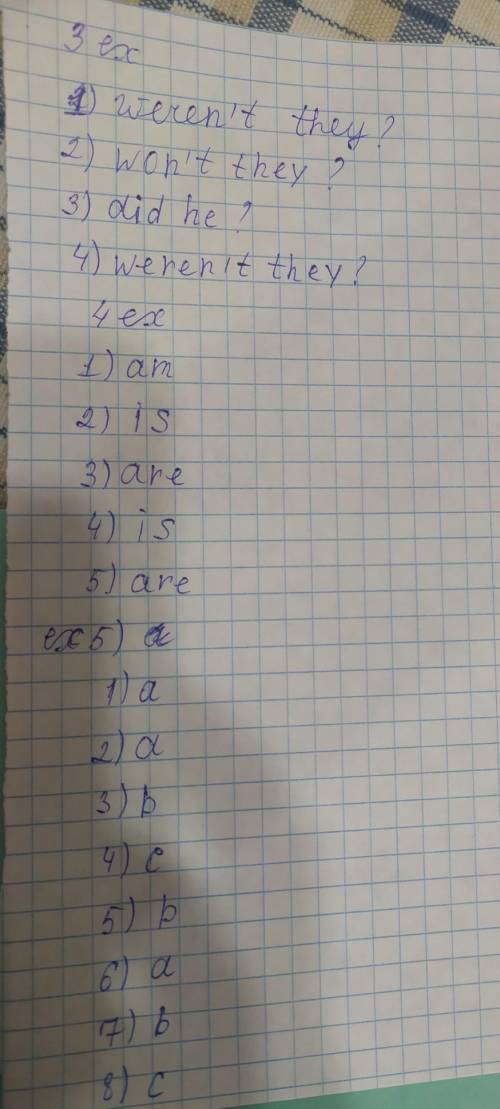 3 ex
1) weren't they?
2) won't they?
3) did he?
4) weren't they?
4 ex
1) am
2) is
3) are
4) is
5) are
ex 5)
1) a
2) a
3) b
4) c
5) b
6) a
7) b
8) c